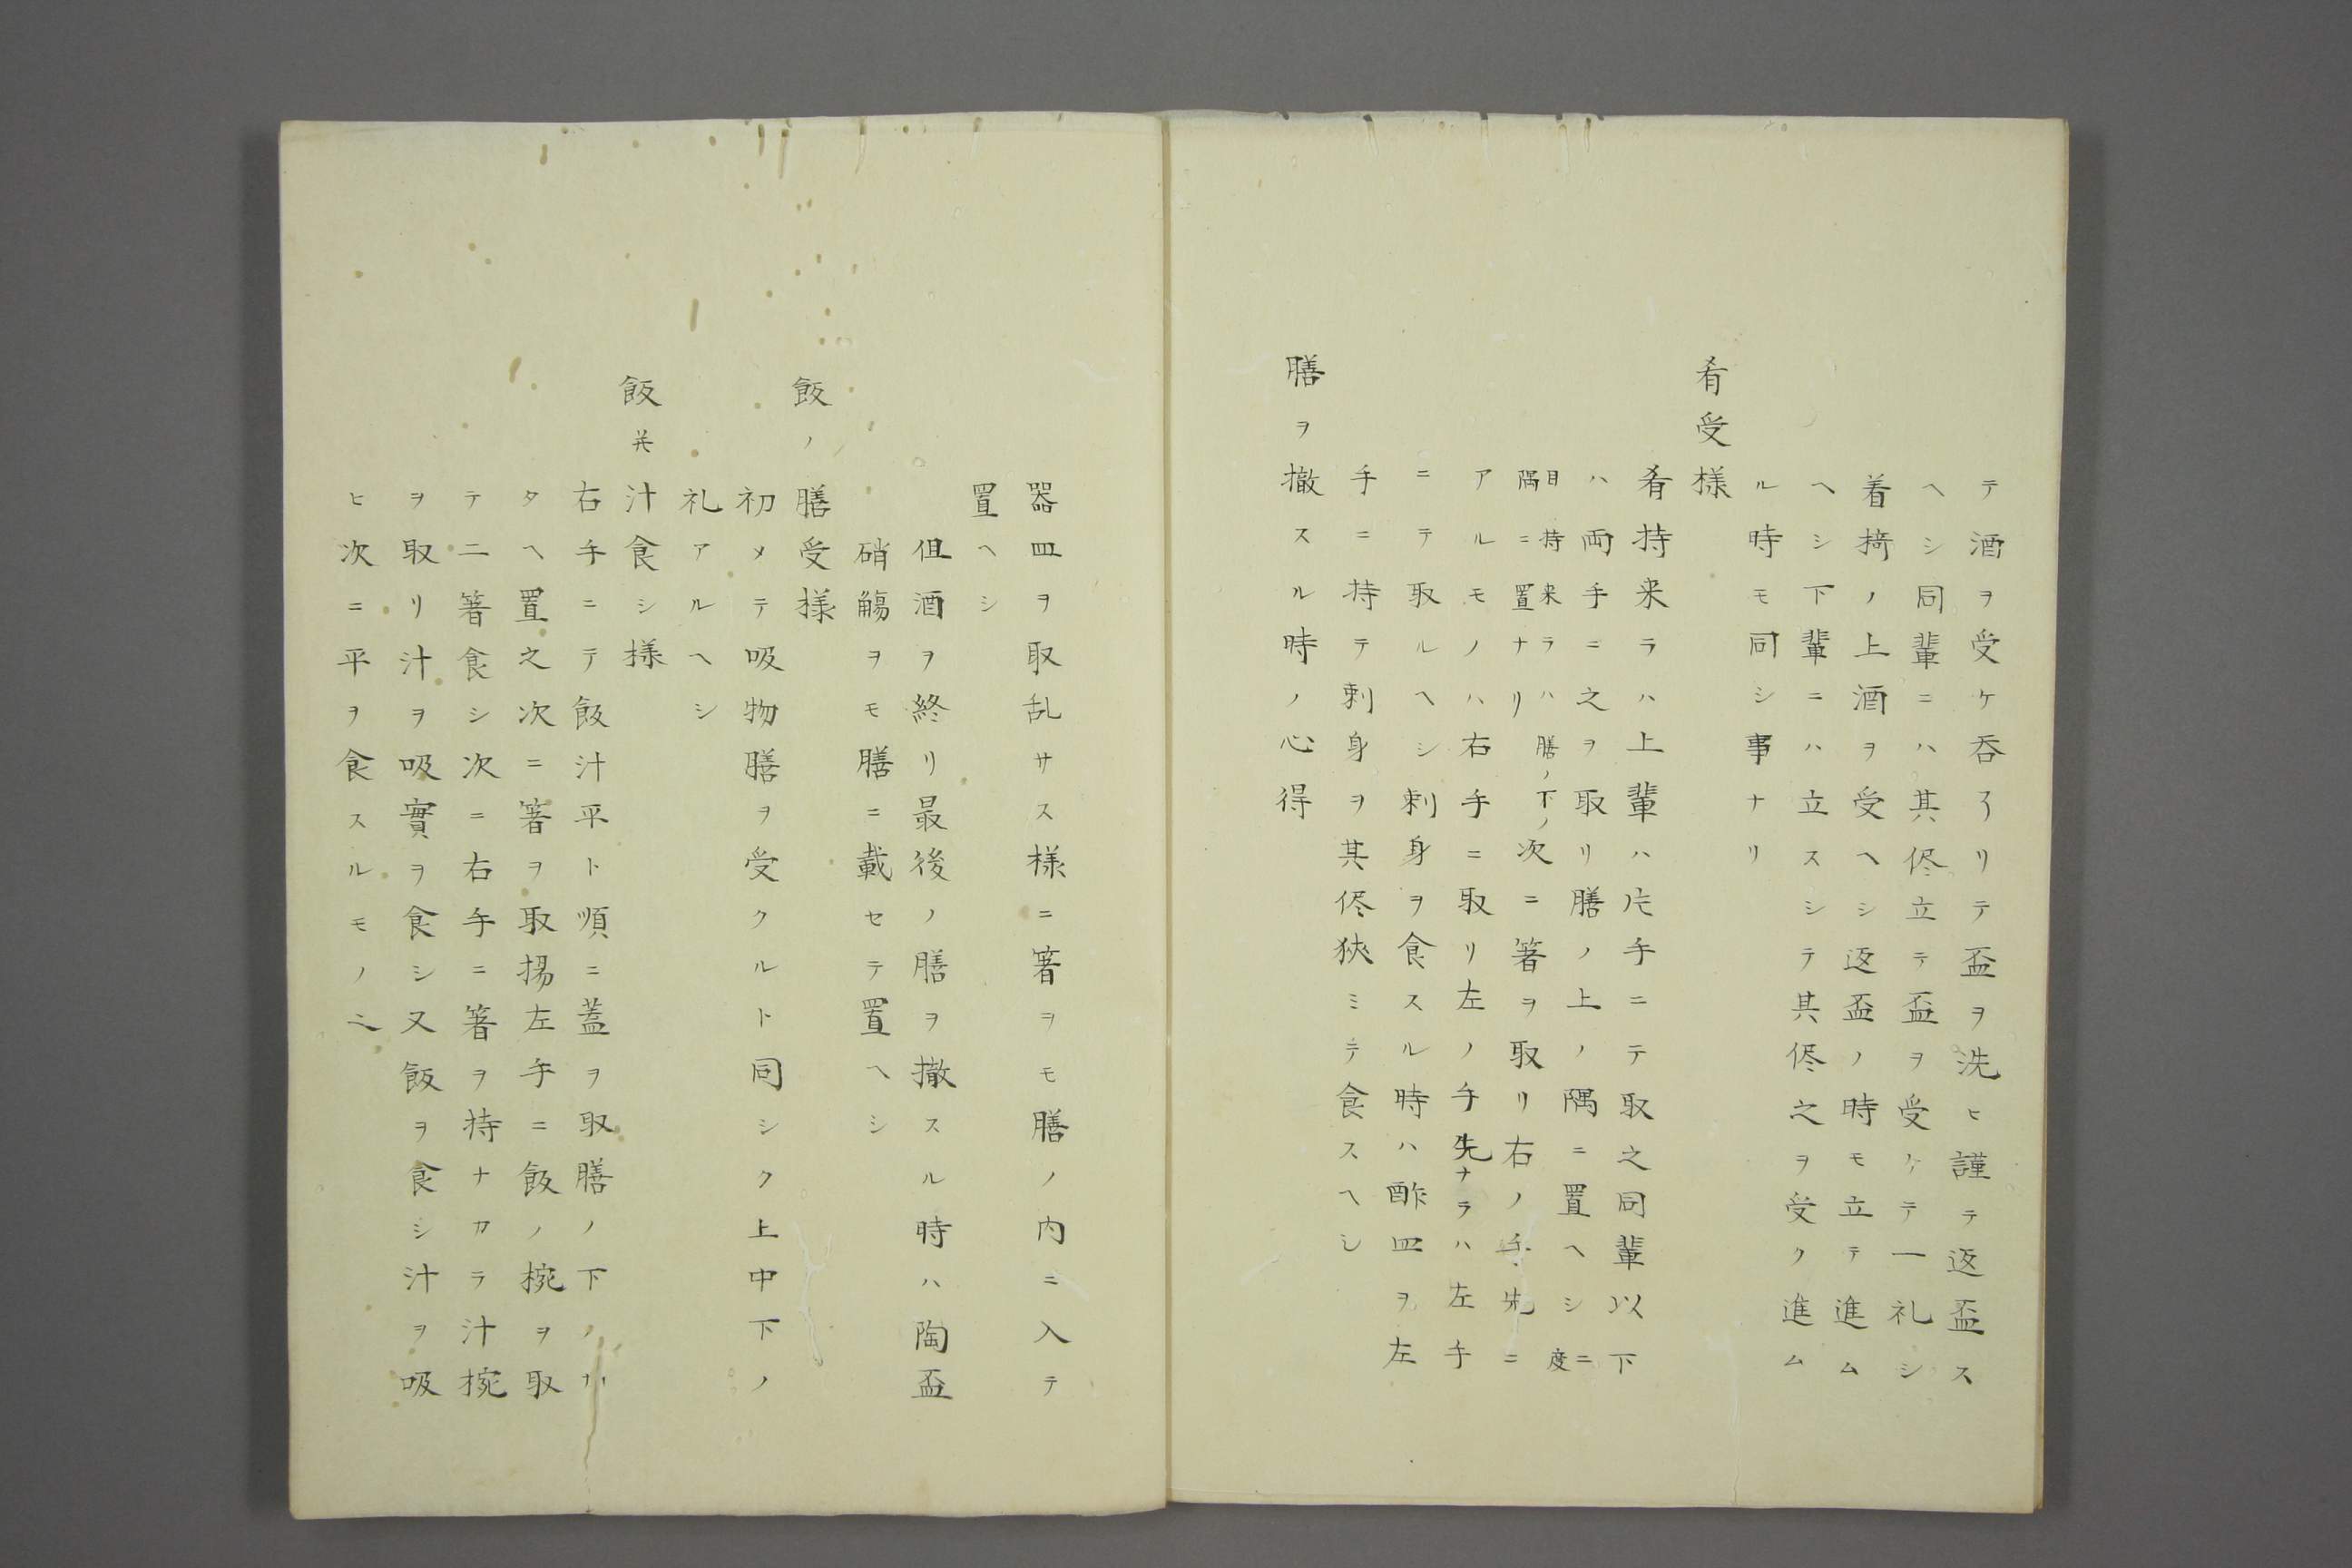 テ酒ヲ受ケ呑了リテ盃ヲ洗ヒ謹テ返盃ス
ヘシ同輩ニハ其侭立テ盃ヲ受ケテ一礼シ
着椅ノ上酒ヲ受ヘシ返盃ノ時モ立テ進ム
ヘシ下輩ニハ立スシテ其侭之ヲ受ク進ム
ル時モ同シ事ナリ
肴受様
肴持来ラハ上輩ハ片手ニテ取之同輩以下
ハ両手ニ之ヲ取リ膳ノ上ノ隅ニ置ヘシ二度
目持来ラハ膳ノ下ノ
隅ニ置ナリ次ニ箸ヲ取リ右ノ手先ニ
アルモノハ右手ニ取リ左ノ手先ナラハ左手
ニテ取ルヘシ刺身ヲ食スル時ハ酢皿ヲ左
手ニ持テ刺身ヲ其侭狹ミテ食スヘシ
膳ヲ撤スル時ノ心得
器皿ヲ取乱サス様ニ箸ヲモ膳ノ内ニ入テ
置ヘシ
但酒ヲ終リ最後ノ膳ヲ撤スル時ハ陶盃
硝觴ヲモ膳ニ載セテ置ヘシ
飯ノ膳受様
初メテ吸物膳ヲ受クルト同シク上中下ノ
礼アルヘシ
飯并汁食シ様
右手ニテ飯汁平ト順ニ蓋ヲ取膳ノ下ノ
タヘ置之次ニ箸ヲ取揚左手ニ飯ノ椀ヲ取
テ二箸食シ次ニ右手ニ箸ヲ持ナカラ汁椀
ヲ取リ汁ヲ吸實ヲ食シ又飯ヲ食シ汁ヲ吸
ヒ次ニ平ヲ食スルモノ